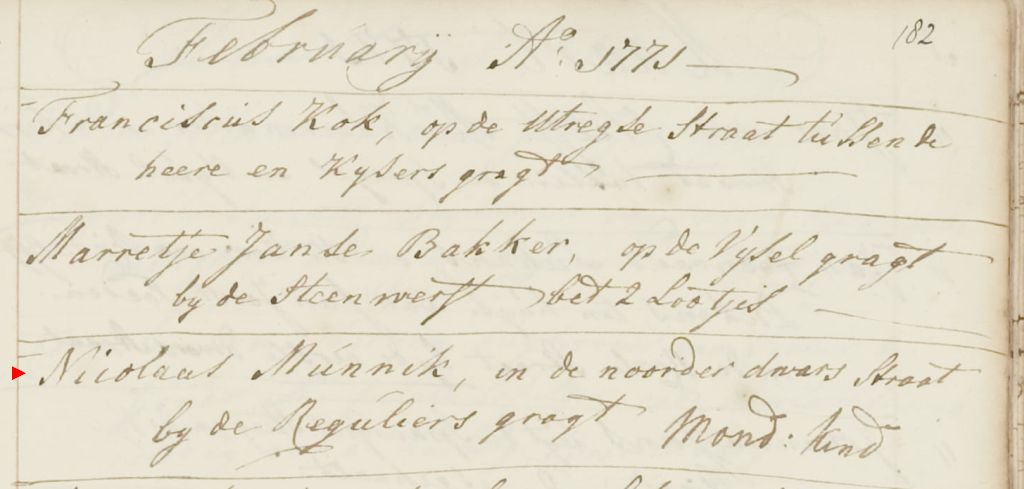 182
Februarÿ Aº: 1771
Franciscus Kok, op de Utregse Straat tussen de
heere en Kysers gragt
Marretje Janse Bakker, op de Vysel gragt
by de Steen werft bet 2 Lootjis
Nicolaas Munnik, in de noorder dwars Straat
by de Reguliers gragt Mond: kind